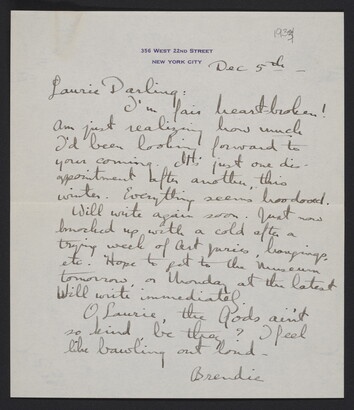 1933
356 WEST 22ND STREET
NEW YORK CITY
Dec 5th –
Laurie Darling:
I'm fair heart-broken!
Am just realizing how much
I'd been looking forward to
your coming. It's just one dis-
appointment after another, this
winter. Everything seems hoodooed.
Will write again soon. Just now
knocked up with a cold after a
trying week of Art juries, hangings,
etc. Hope to get to the Museum
tomorrow, or Monday at the latest
Will write immediately.
O, Laurie, the Gods ain't
so kind, be they? I feel
like bawling out loud –
Brendie